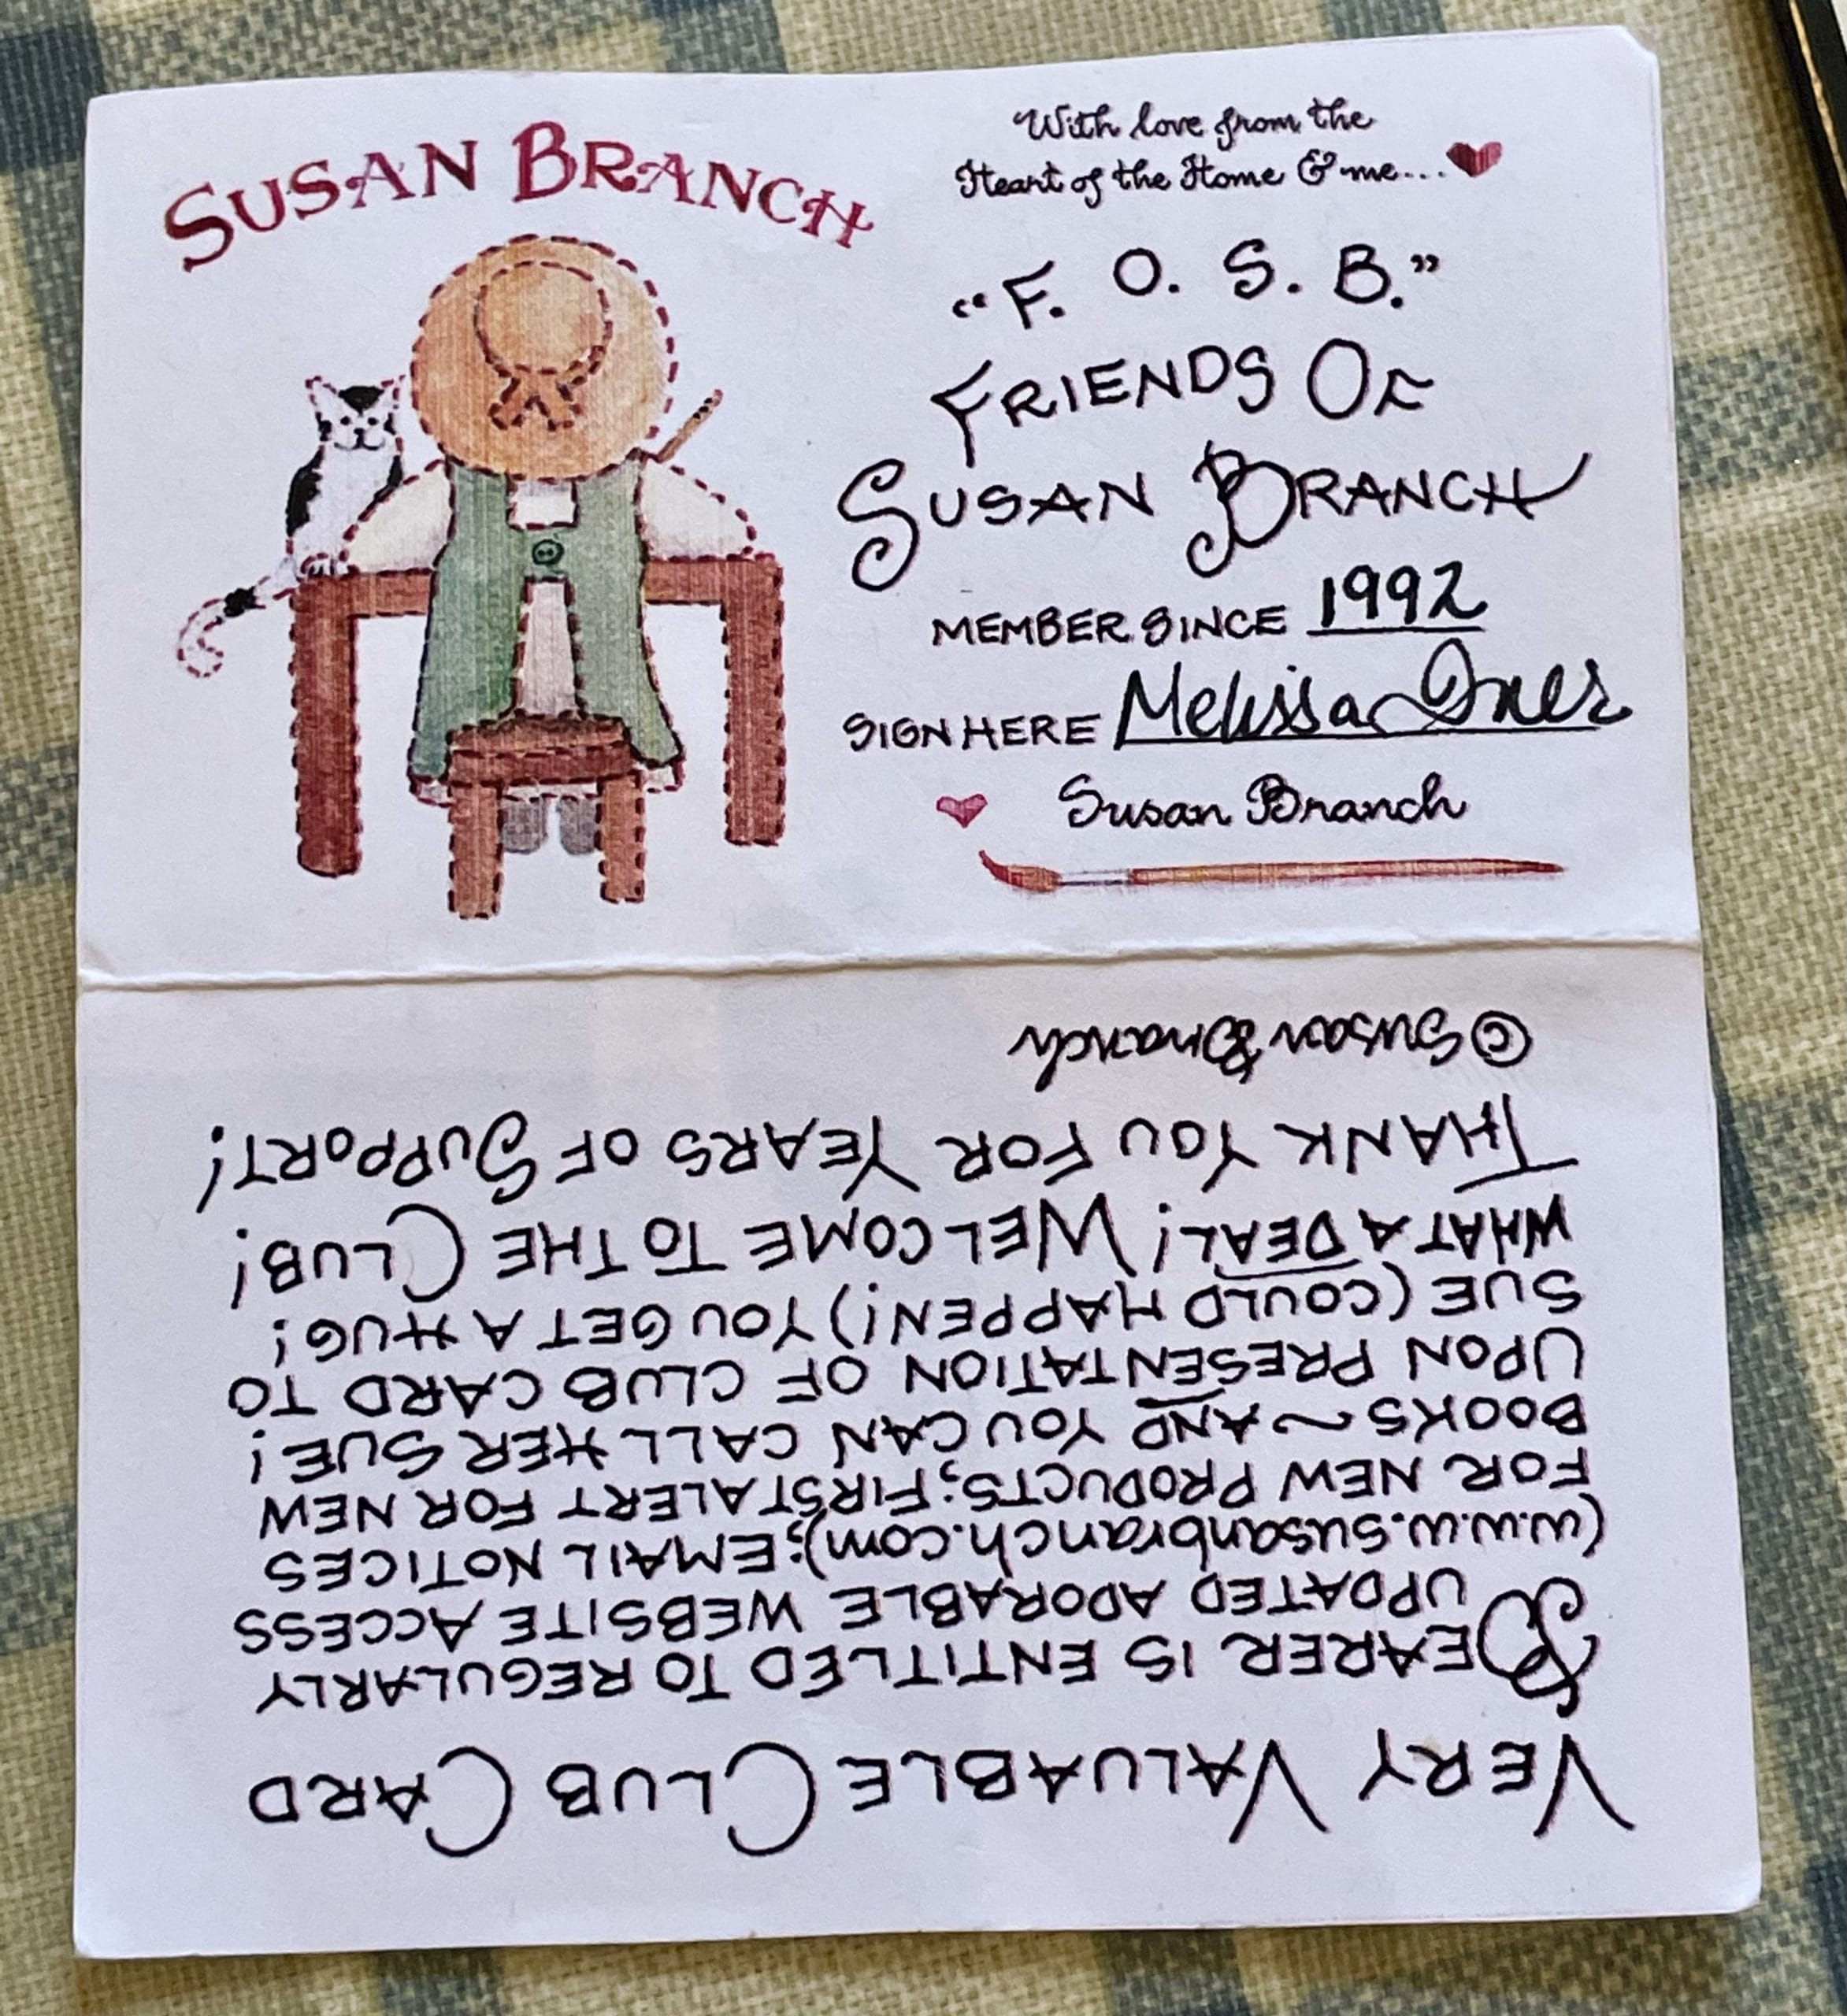 SUSAN BRANCH
With love from the
Heart of the Home & me...
"F. O. S. B."
FRIENDS OF
SUSAN BRANCH
MEMBER SINCE 1992
SIGN HERE Melissa
Susan Branch
VERY VALUABLE CLUB CARD
BEARER IS ENTITLED TO REGULARLY
UPDATED ADORABLE WEBSITE ACCESS
(w.w.w.susanbranch.com); EMAIL NOTICES
FOR NEW PRODUCTS; FIRST ALERT FOR NEW
BOOKS ~ AND YOU CAN CALL HER SUE!
UPON PRESENTATION OF CLUB CARD TO
SUE (COULD HAPPEN!) YOU GET A HUG!
WHAT A DEAL! WELCOME TO THE CLUB!
THANK YOU FOR YEARS OF SUPPORT!
© Susan Branch